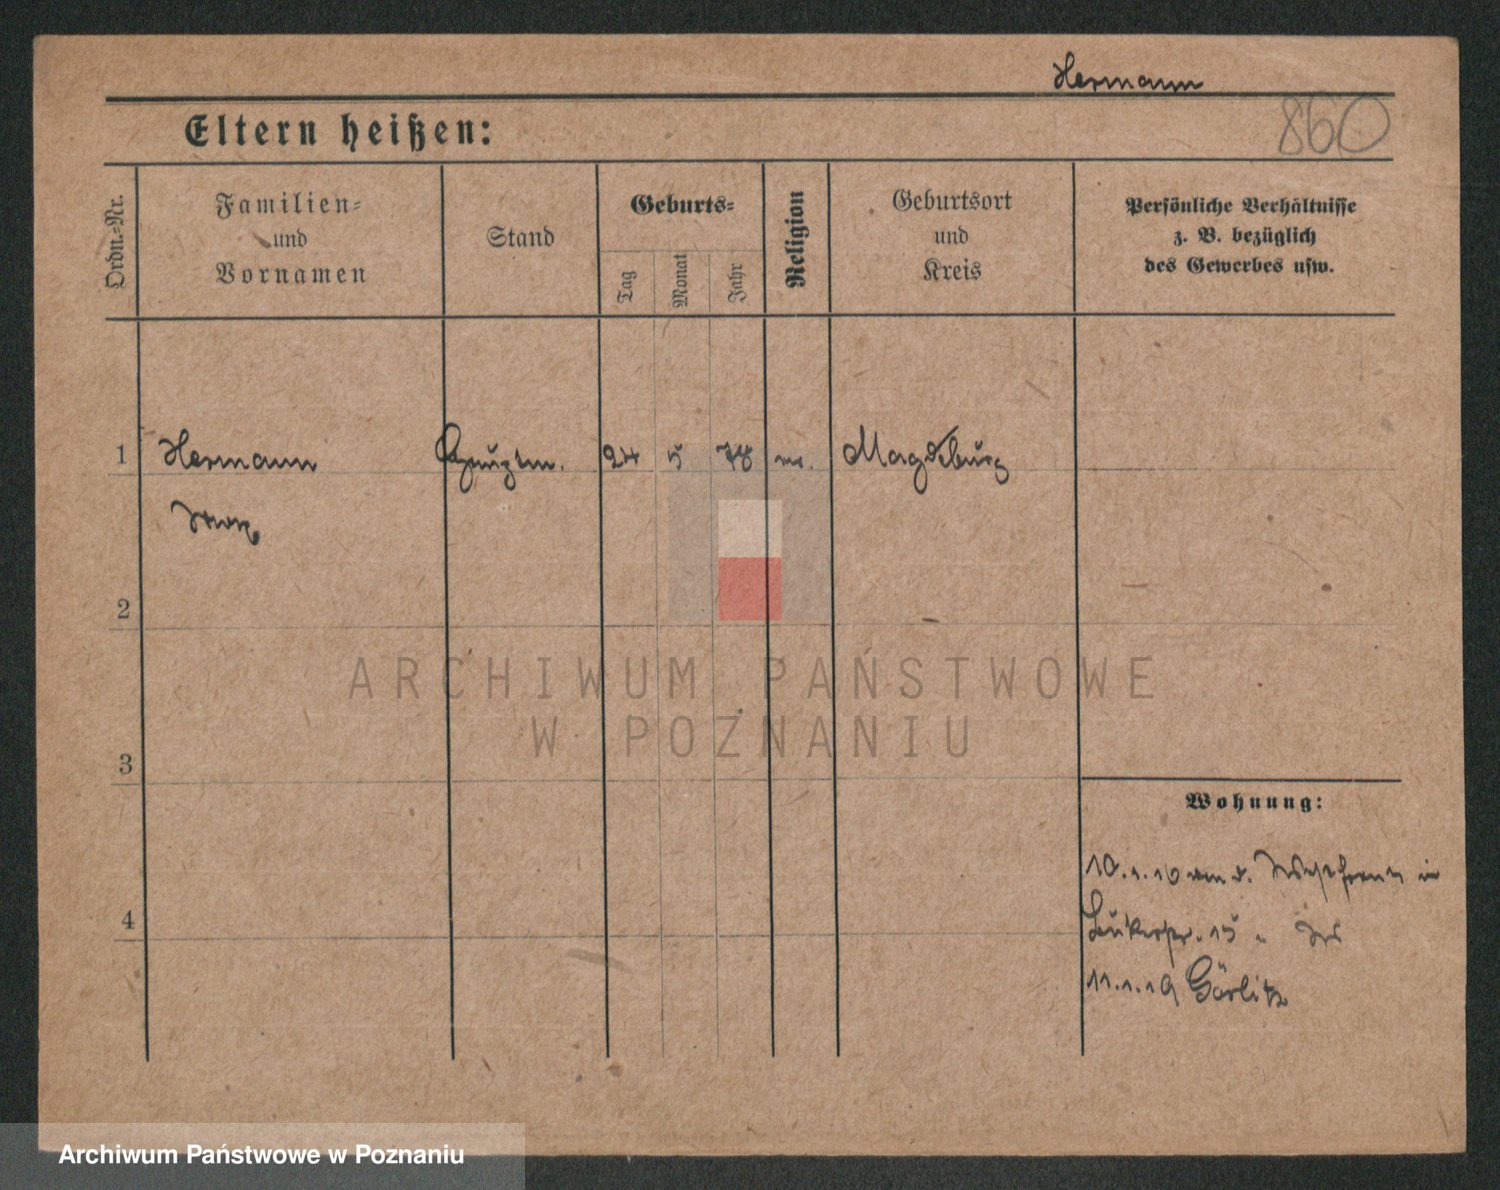 Hermann
860
Eltern heißen:
Ordn.-Nr.
Familien-
und
Vornamen
Stand
Geburts-
Tag
Monat
Jahr
Religion
Geburtsort
und
Kreis
Persönliche Verhältnisse
z. B. bezüglich
des Gewerbes usw.
1 Hermann Hauptm. 24 5 78 ev. Magdeburg
Max
2
3
4
Wohnung:
10.1.10 in
15
11.1.19 Görlitz
ARCHIWUM PAŃSTWOWE
W POZNANIU
Archiwum Państwowe w Poznaniu